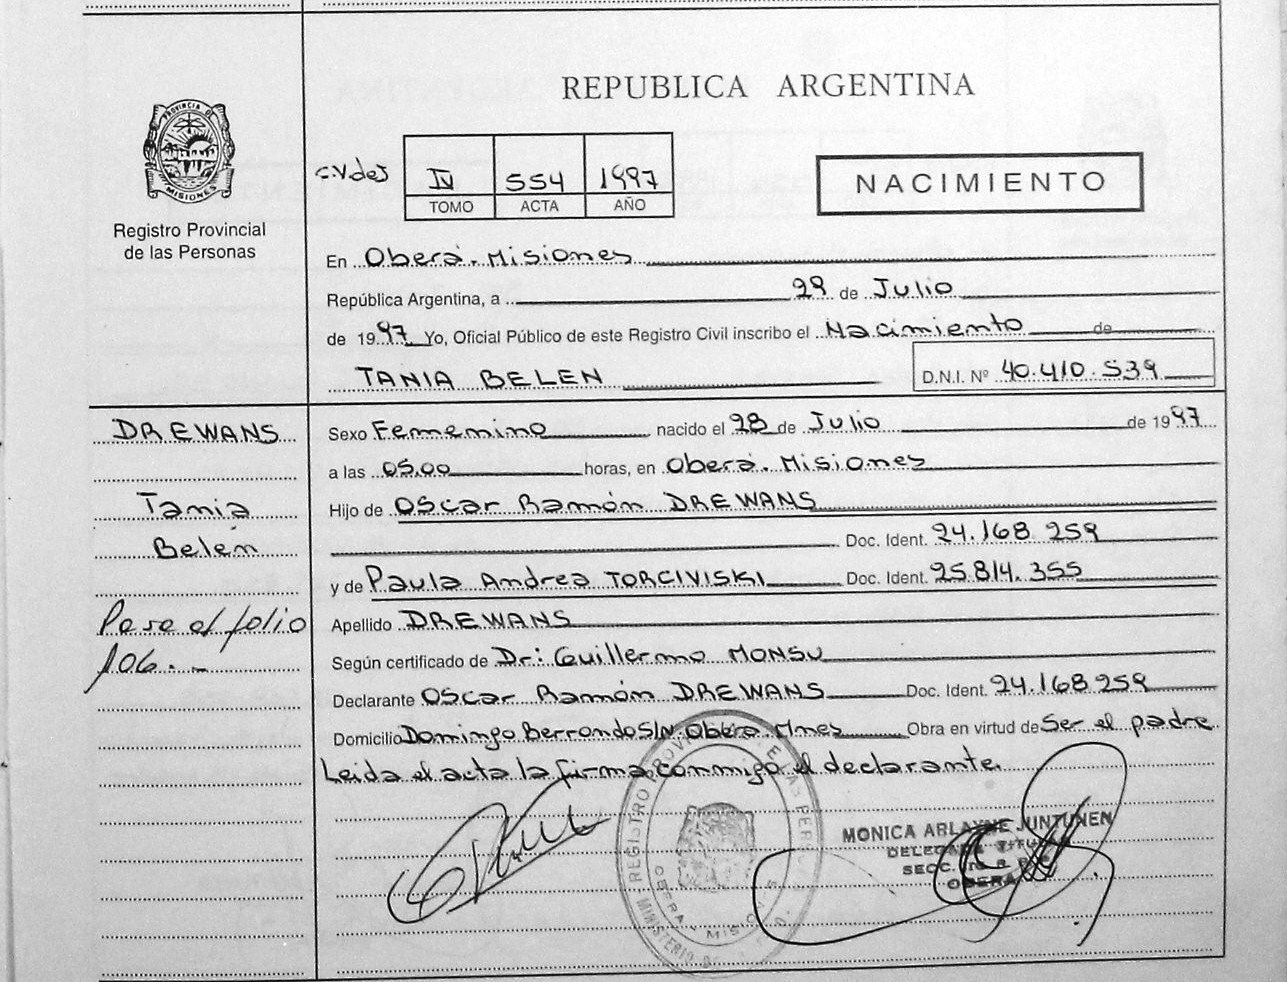 REPUBLICA ARGENTINA
PROVINCIA DE
MISIONES
Registro Provincial
de las Personas
C.V de J
IV 554 1997
TOMO ACTA AÑO
NACIMIENTO
En Oberá. Misiones
República Argentina, a 29 de Julio
de 1997 Yo, Oficial Público de este Registro Civil inscribo el Nacimiento de
TANIA BELEN D.N.I. Nº 40.410.539
DREWANS
Tania
Belén
Pasa al folio
106.-
Sexo Femenino nacido el 28 de Julio de 1997
a las 05.00 horas, en Oberá. Misiones
Hijo de Oscar Ramón DREWANS
Doc. Ident. 24.168.259
y de Paula Andrea TORCIVISKI Doc. Ident. 25.814.355
Apellido DREWANS
Según certificado de Dr: Guillermo MONSU
Declarante Oscar Ramón DREWANS Doc. Ident. 24.168.259
Domicilio Domingo Berrondo S/N. Oberá. Mnes Obra en virtud de Ser el padre
Leida el acta la firma conmigo el declarante.
REGISTRO PROVINCIAL DE LAS PERSONAS
OBERA MISIONES
MINISTERIO DE
MONICA ARLAYNE JUNTUNEN
DELEGADA TITULAR
SECC.
OBERA